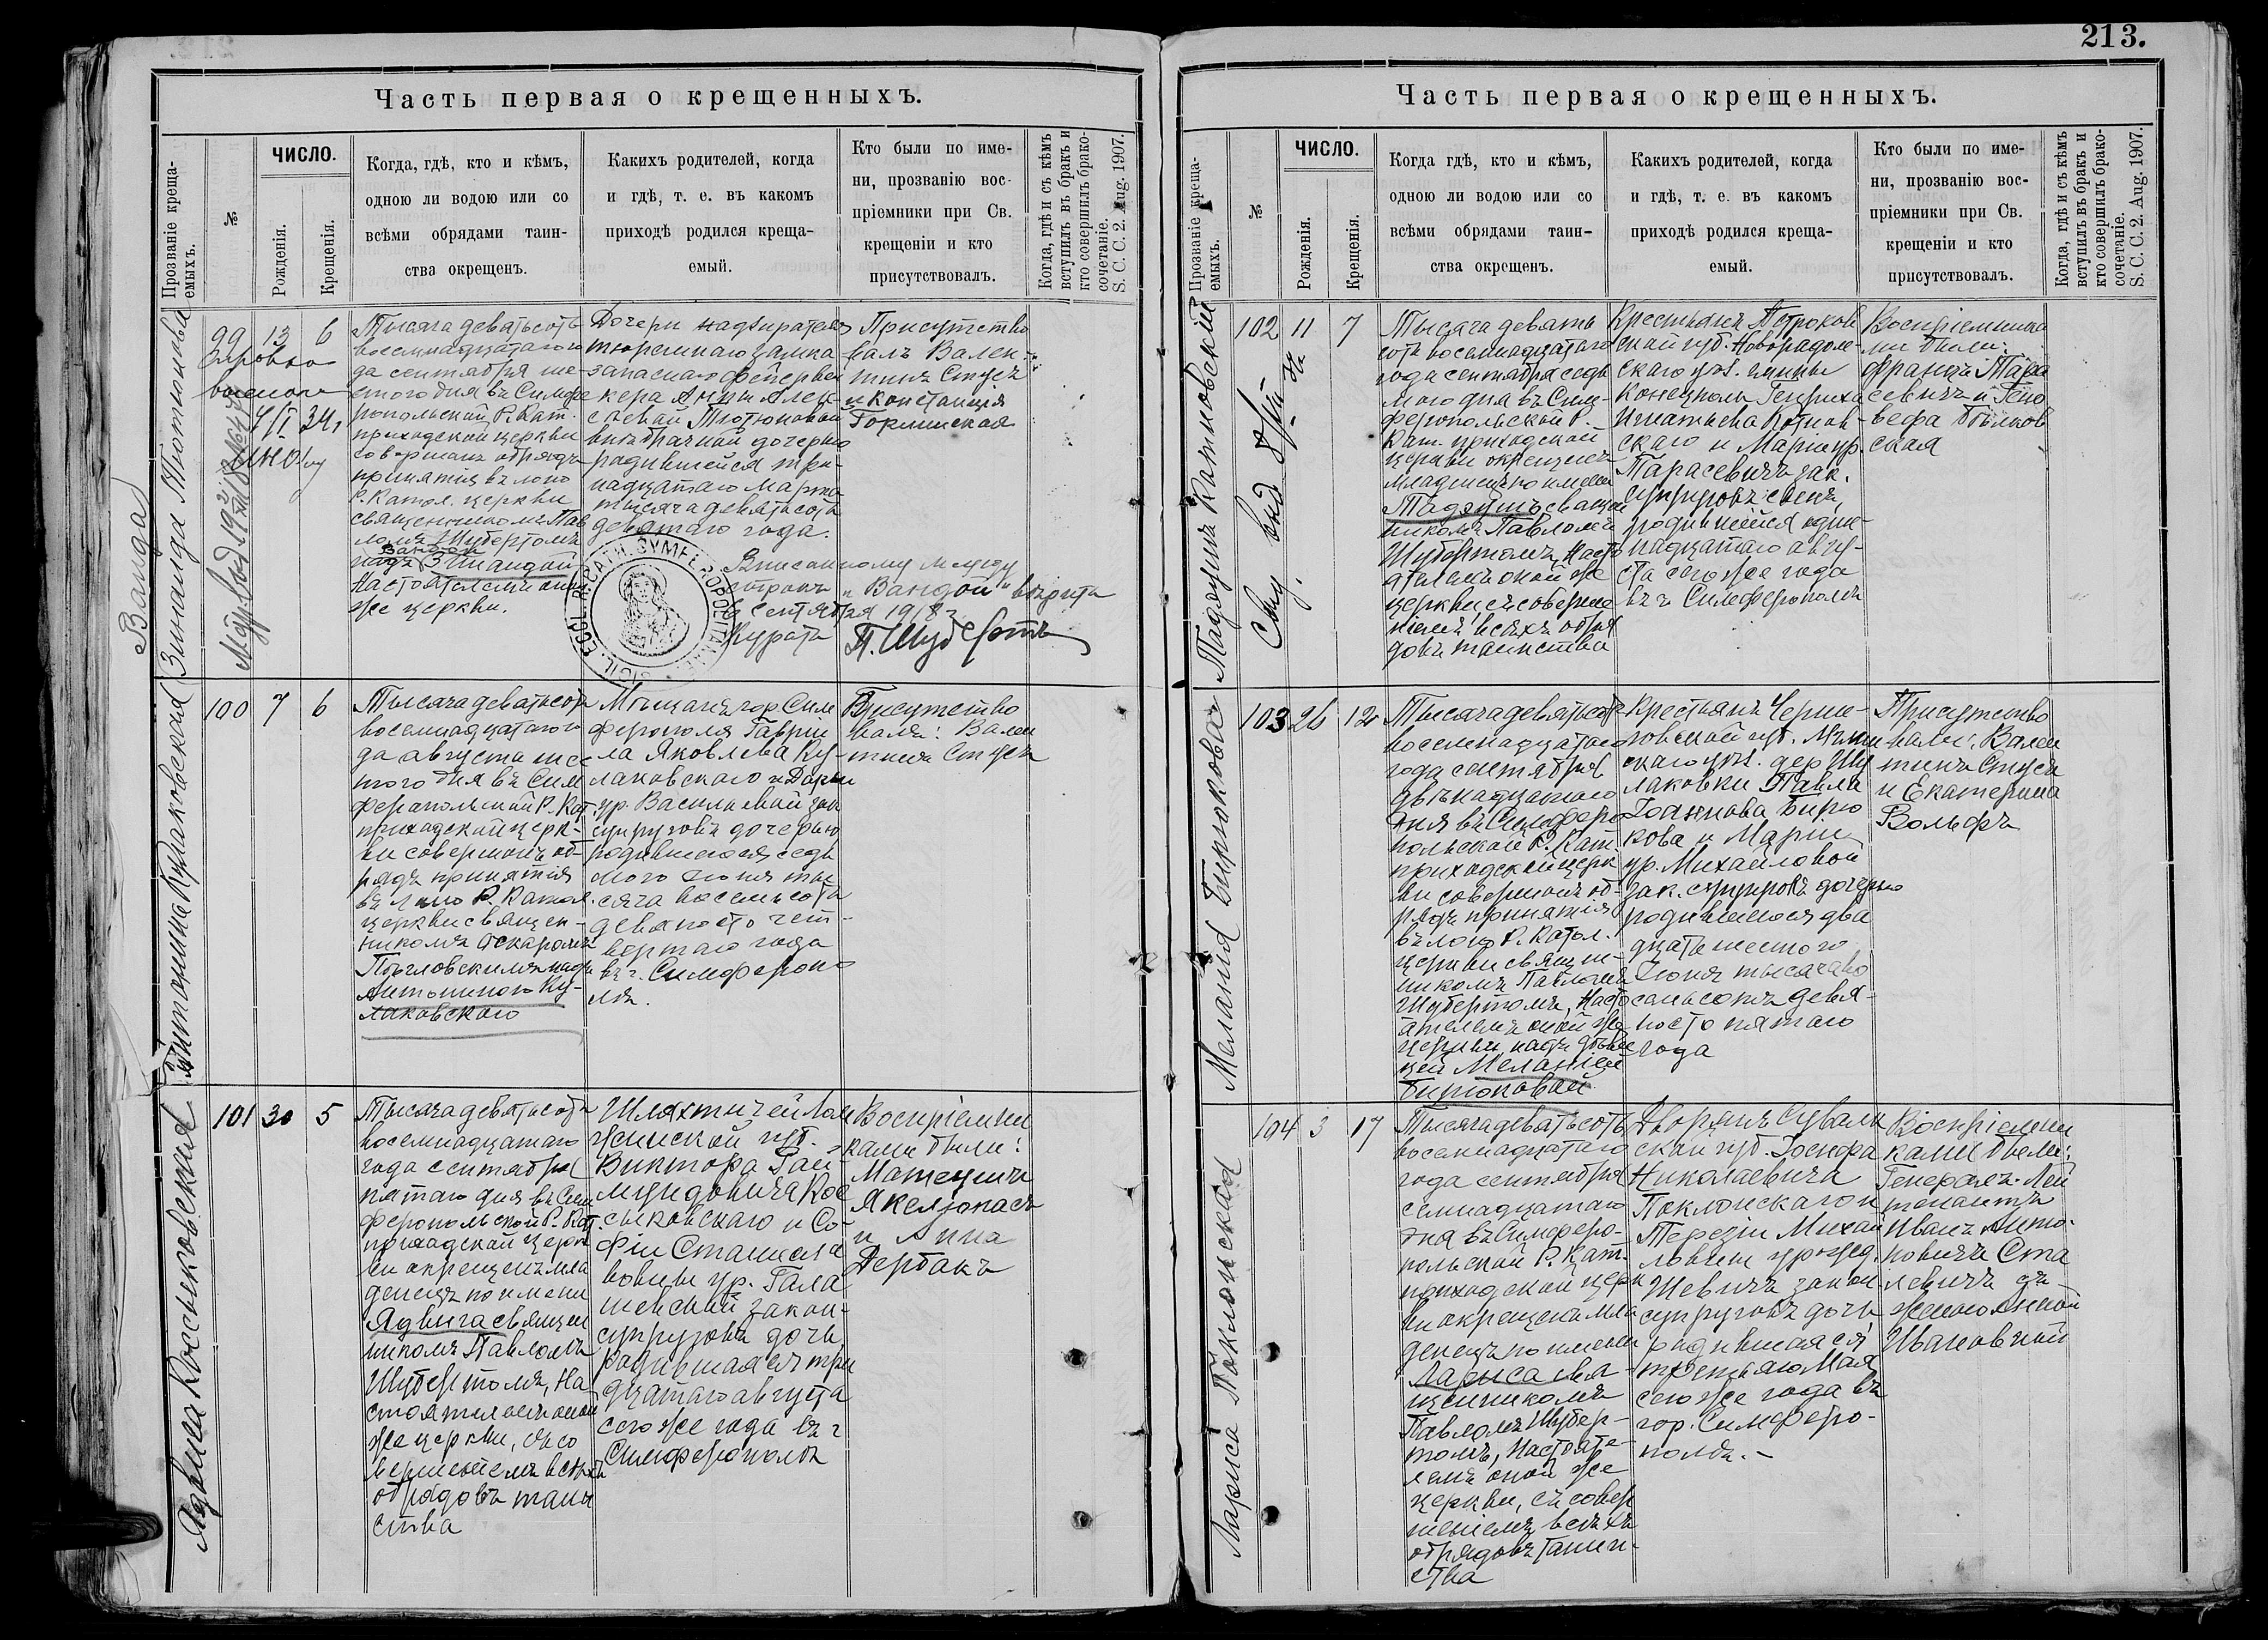 213.
Часть первая о крещенныхъ.
Прозваніе креща-
емыхъ.
№
ЧИСЛО.
Рожденія.
Крещенія.
Когда, гдѣ, кто и кѣмъ,
одною ли водою или со
всѣми обрядами таин-
ства окрещенъ.
Какихъ родителей, когда
и гдѣ, т. е. въ какомъ
приходѣ родился креща-
емый.
Кто были по име-
ни, прозванію вос-
пріемники при Св.
крещеніи и кто
присутствовалъ.
Когда, гдѣ и съ кѣмъ
вступилъ въ бракъ и
кто совершилъ брако-
сочетаніе.
S. C. C. 2. Aug. 1907.
Ванда
Зинаида Тютюкова
99 13 6
Тысяча девятьсотъ
восемнадцатаго го
да сентября ше
стого дня въ Симфе
ропольской Р. Кат.
приходской церкви
совершенъ обрядъ
принятія въ лоно
Р. Катол. церкви
священникомъ Пав
ломъ Шубертомъ
Вандой
надъ Зинаидой
Настоятелемъ оной
же церкви.
Дочери надзирателя
тюремнаго замка
запаснаго фейервер
кера Анны Алек
сѣевой Тютюковой
внѣбрачной дочерью
родившейся три-
надцатаго марта
тысяча девятьсотъ
девятаго года.
Присутство
валъ Вален-
тинъ Стусъ
и Констанція
Горлинская
SIGIL. ECCL. R. CATH. SYMFEROPOLITANAE
Вписанному между
строкъ „Вандой“ вѣрить
сентября 1918 г.
Куратъ П. Шубертъ
Антонина Кулаковская
100 7 6
Тысяча девятьсотъ
восемнадцатаго го
да августа шес
того дня въ Сим
феропольской Р. Кат.
приходской церк-
ви совершонъ об-
рядъ принятія
въ лоно Р. Катол.
церкви священ-
никомъ
надъ
Антониною Ку-
лаковскаго
Мѣщанъ гор. Сим
ферополя Гаврии
ла Яковлева Ку-
лаковскаго и Дарьи
ур. Васильевой зак
супруговъ дочерью
родившегося седь
мого іюня ты
сяча восемьсотъ
девяносто чет-
вертаго года
въ г. Симферопо
лѣ.
Присутство
валъ: Вален
тинъ Стусъ
Ядвига Коссыковская
101 30 5
Тысяча девятьсотъ
восемнадцатаго
года сентября
пятаго дня въ Сим
феропольской Р. Кат.
приходской церк
ви окрещенъ мла
денецъ по имени
Ядвига священ
никомъ Павломъ
Шубертомъ, На
стоятелемъ оной
же церкви, съ со
вершеніемъ всѣхъ
обрядовъ таин
ства
Шляхтичей Лом
жинской губ.
Виктора Рай-
мундовича Кос
сыковскаго и Со-
фіи Станисла
вовны ур. Гала
шевской закон-
супруговъ дочь
родившаяся три
дцатаго августа
сего же года въ г
Симферополѣ
Воспріемни
ками были:
и Анна
Дербакъ
Часть первая о крещенныхъ.
Прозваніе креща-
емыхъ.
№
ЧИСЛО.
Рожденія.
Крещенія.
Когда гдѣ, кто и кѣмъ,
одною ли водою или со
всѣми обрядами таин-
ства окрещенъ.
Какихъ родителей, когда
и гдѣ, т. е. въ какомъ
приходѣ родился креща-
емый.
Кто были по име-
ни, прозванію вос-
пріемники при Св.
крещеніи и кто
присутствовалъ.
Когда, гдѣ и съ кѣмъ
вступилъ въ бракъ и
кто совершилъ брако-
сочетаніе.
S. C. C. 2. Aug. 1907.
Тадеушъ Котновскій
102 11 7
Тысяча девять
сотъ восемнадцатаго
года сентября седь
мого дня въ Сим-
феропольской Р.
Кат. приходской
церкви окрещенъ
младенецъ по имени
Тадеушъ священ
никомъ Павломъ
Шубертомъ, Насто
ятелемъ оной же
церкви съ соверше
ніемъ всѣхъ обря
довъ таинства
Крестьянъ Петроков
ской губ. Новорадом-
скаго уѣз. гмины
Конецполь Генриха
Игнатьева Котнов-
скаго и Маріи ур.
Тарасевичъ зак.
супруговъ сынъ,
родившійся един-
надцатаго авгу-
ста сего же года
въ г. Симферополѣ
Воспріемника
ми были:
Францъ Тара
севичъ и Гено
вефа
Меланія Бирюкова
103 26 12
Тысяча девятьсотъ
восемнадцатаго
года сентября
двѣнадцатаго
дня въ Симферо
польской Р. Кат.
приходской церк
ви совершонъ об-
рядъ принятія
въ лоно Р. Катол.
церкви священ-
никомъ Павломъ
Шубертомъ, Насто
ятелемъ оной же
церкви надъ дѣви
цей Меланіей
Бирюковой
Крестьянъ Черни-
говской губ. Мглин
скаго уѣз. дер Шу
лаковки Павла
Іоаннова Бирю
кова и Маріи
ур. Михайловой
зак. супруговъ дочерью
родившегося два
дцать шестого
Іюня тысяча во
семьсотъ девя-
носто пятаго
года
Присутство
вали: Вален
тинъ Стусъ
и Екатерина
Вольфъ
Лариса Поклонская
104 3 17
Тысяча девятьсотъ
восемнадцатаго
года сентября
семнадцатаго
дня въ Симферо-
польской Р. Кат.
приходской церк
ви окрещенъ мла
денецъ по имени
Лариса свя-
щенникомъ
Павломъ Шубер-
томъ, Настояте-
лемъ оной же
церкви, съ совер
шеніемъ всѣхъ
обрядовъ таин-
ства
Дворянъ Сувалк
ской губ. Іосифа
Николаевича
Поклонскаго и
Терезіи Михай
ловны урожд.
Шевичъ закон
супруговъ дочь
родившаяся
третьяго Мая
сего же года въ
гор. Симферо-
полѣ.-
Воспріемни
ками были:
Генералъ-Лей
тенантъ
Иванъ Анто-
новичъ Ста
левичъ съ
женою Анной
Ивановной